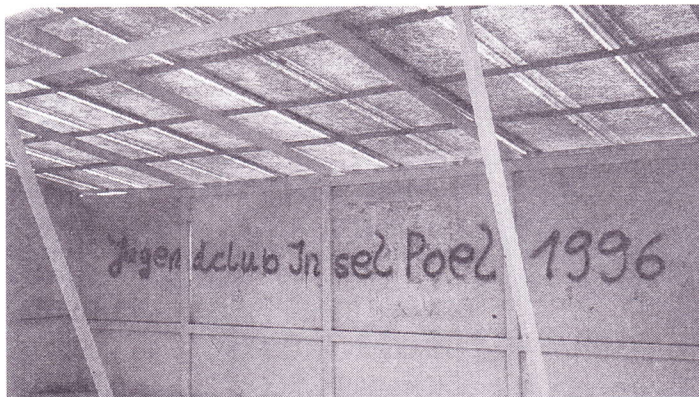 Jugendclub Insel Poel 1996